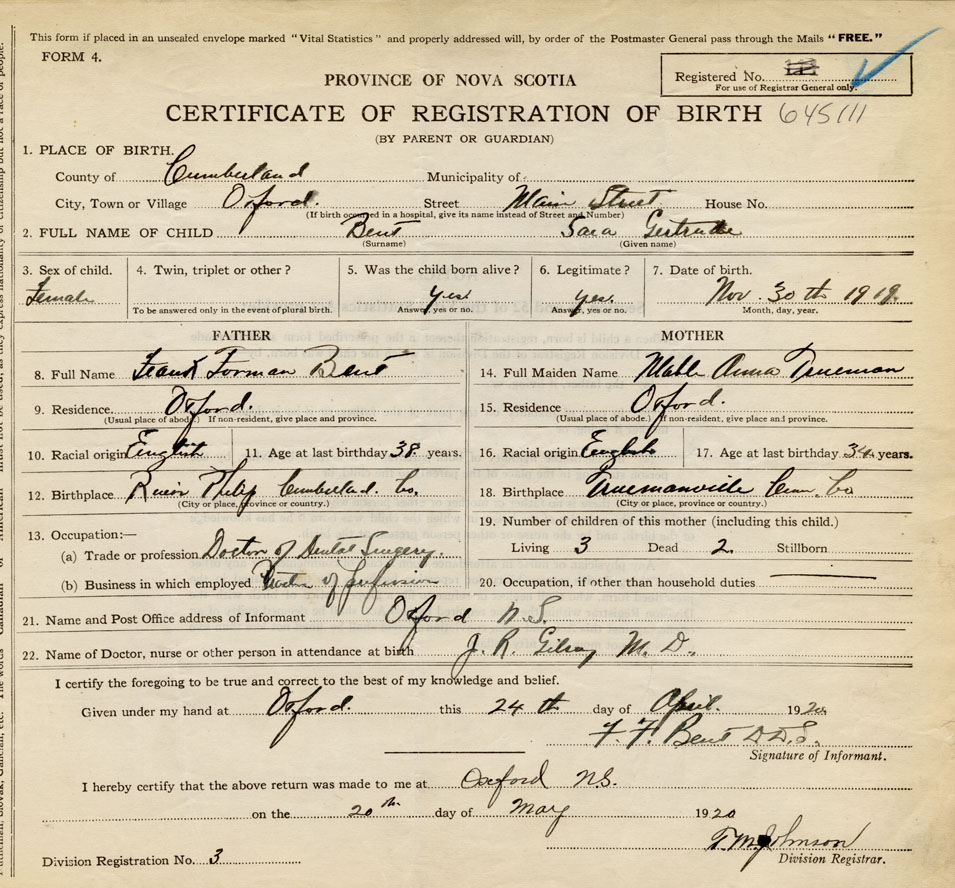 This form if placed in an unsealed envelope marked "Vital Statistics" and properly addressed will, by order of the Postmaster General pass through the Mails "FREE."
FORM 4.
Registered No.
For use of Registrar General only.
PROVINCE OF NOVA SCOTIA
CERTIFICATE OF REGISTRATION OF BIRTH 645111
(BY PARENT OR GUARDIAN)
1. PLACE OF BIRTH.
County of Cumberland Municipality of
City, Town or Village Oxford. Street Main Street House No.
(If birth occurred in a hospital, give its name instead of Street and Number)
2. FULL NAME OF CHILD Bent Sara Gertrude
(Surname) (Given name)
3. Sex of child. 4. Twin, triplet or other? 5. Was the child born alive? 6. Legitimate? 7. Date of birth.
Female yes yes. Nov. 30th 1919.
To be answered only in the event of plural birth. Answer, yes or no. Answer, yes or no. Month, day, year.
FATHER MOTHER
8. Full Name Frank Forman Bent 14. Full Maiden Name Mable Anna Trueman
9. Residence Oxford. 15. Residence Oxford.
(Usual place of abode.) If non-resident, give place and province. (Usual place of abode.) If non-resident, give place and province.
10. Racial origin English 11. Age at last birthday 38 years. 16. Racial origin English 17. Age at last birthday 34 years.
12. Birthplace River Philip Cumberland. Co. 18. Birthplace Truemanville Cum. Co
(City or place, province or country.) (City or place, province or country.)
13. Occupation:— 19. Number of children of this mother (including this child.)
(a) Trade or profession Doctor of Dental Surgery. Living 3 Dead 2. Stillborn
(b) Business in which employed of profession 20. Occupation, if other than household duties
21. Name and Post Office address of Informant Oxford N.S.
22. Name of Doctor, nurse or other person in attendance at birth J. R. Gilroy M. D.
I certify the foregoing to be true and correct to the best of my knowledge and belief.
Given under my hand at Oxford. this 24th day of April. 1920
F. F. Bent D.D.S.
Signature of Informant.
I hereby certify that the above return was made to me at Oxford N.S.
on the 20th day of May 1920
T. M. Johnson
Division Registration No. 3 Division Registrar.